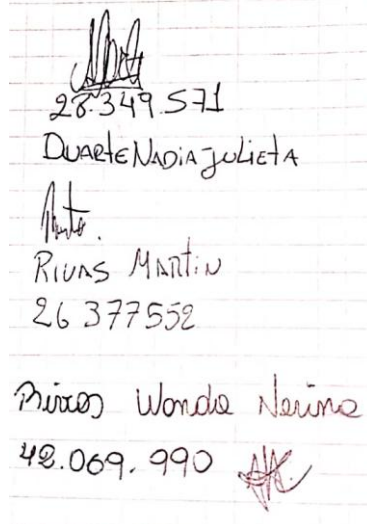 28.349.571
Duarte Nadia Julieta
Rivas Martin
26 377552
Wanda Nerina
42.069.990